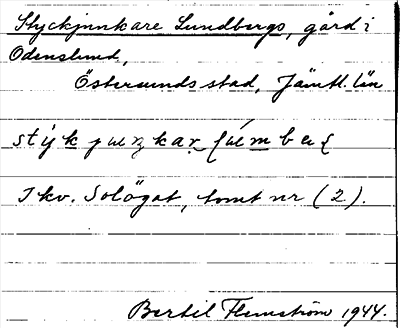 Styckjunkare Lundbergs, gård i
Odenslund,
Östersunds stad, Jämtl. län
I kv. Solögat, tomt nr (2).
Bertil Flemström 1944.